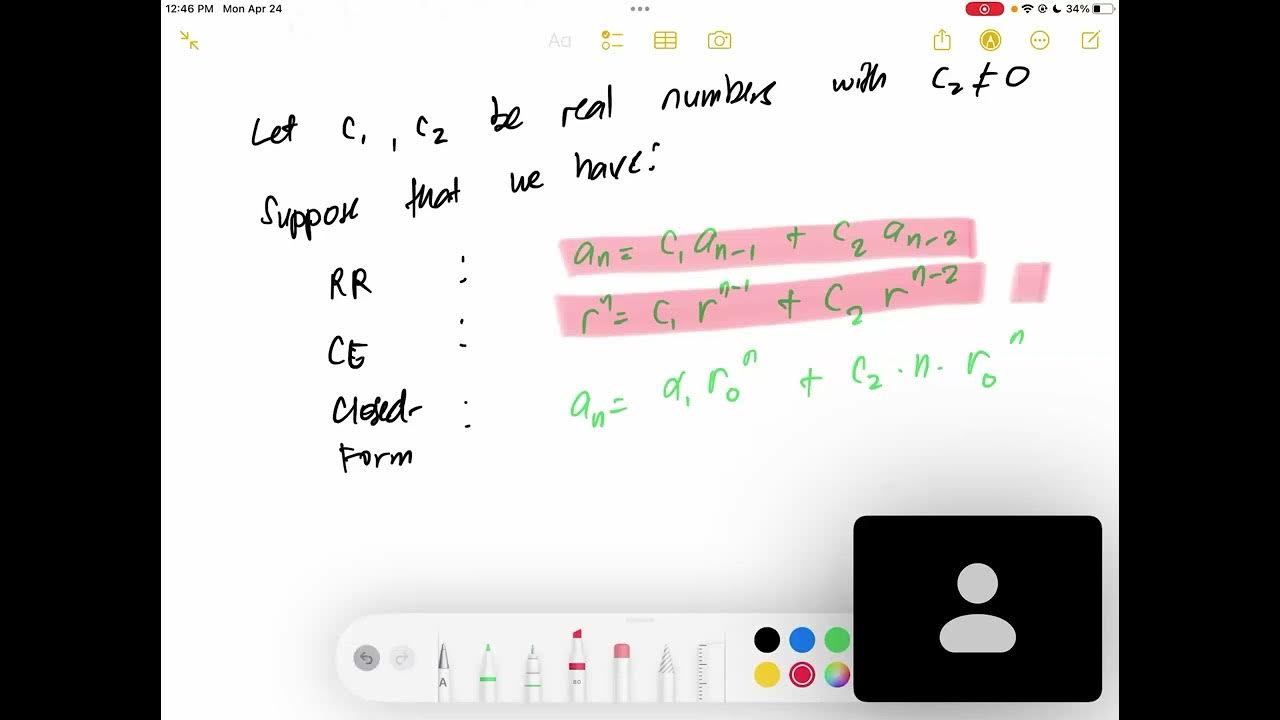 12:46 PM Mon Apr 24
34%
Aa
Let c₁, c₂ be real numbers with c₂ ≠ 0
Suppose that we have:
RR : aₙ = c₁ aₙ₋₁ + c₂ aₙ₋₂
CE : rⁿ = c₁ rⁿ⁻¹ + c₂ rⁿ⁻²
Closed- : aₙ = α₁ r₀ⁿ + c₂ · n · r₀ⁿ
Form
A
80